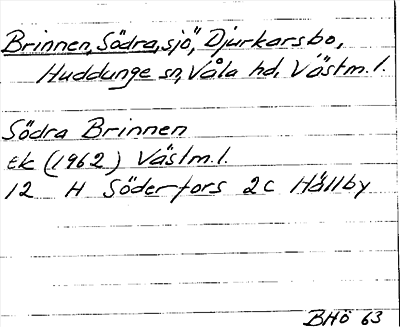 Brinnen, Södra, sjö, Djurkarsbo,
Huddunge sn, Våla hd, Västm.l.
Södra Brinnen
ek (1962) Västm.l.
12 H Söderfors 2c Hällby
BHö 63